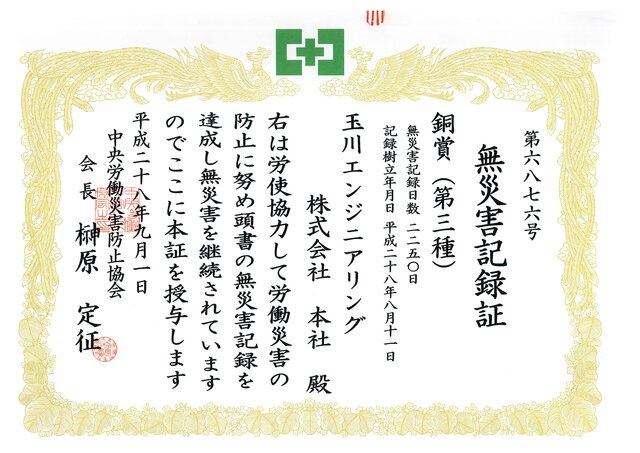 第六八七六号
無災害記録証
銅賞（第三種）
無災害記録日数 二二五〇日
記録樹立年月日 平成二十八年八月十一日
玉川エンジニアリング
株式会社 本社 殿
右は労使協力して労働災害の
防止に努め頭書の無災害記録を
達成し無災害を継続されています
のでここに本証を授与します
平成二十八年九月一日
中央労働災害防止協会
会長 榊原 定征